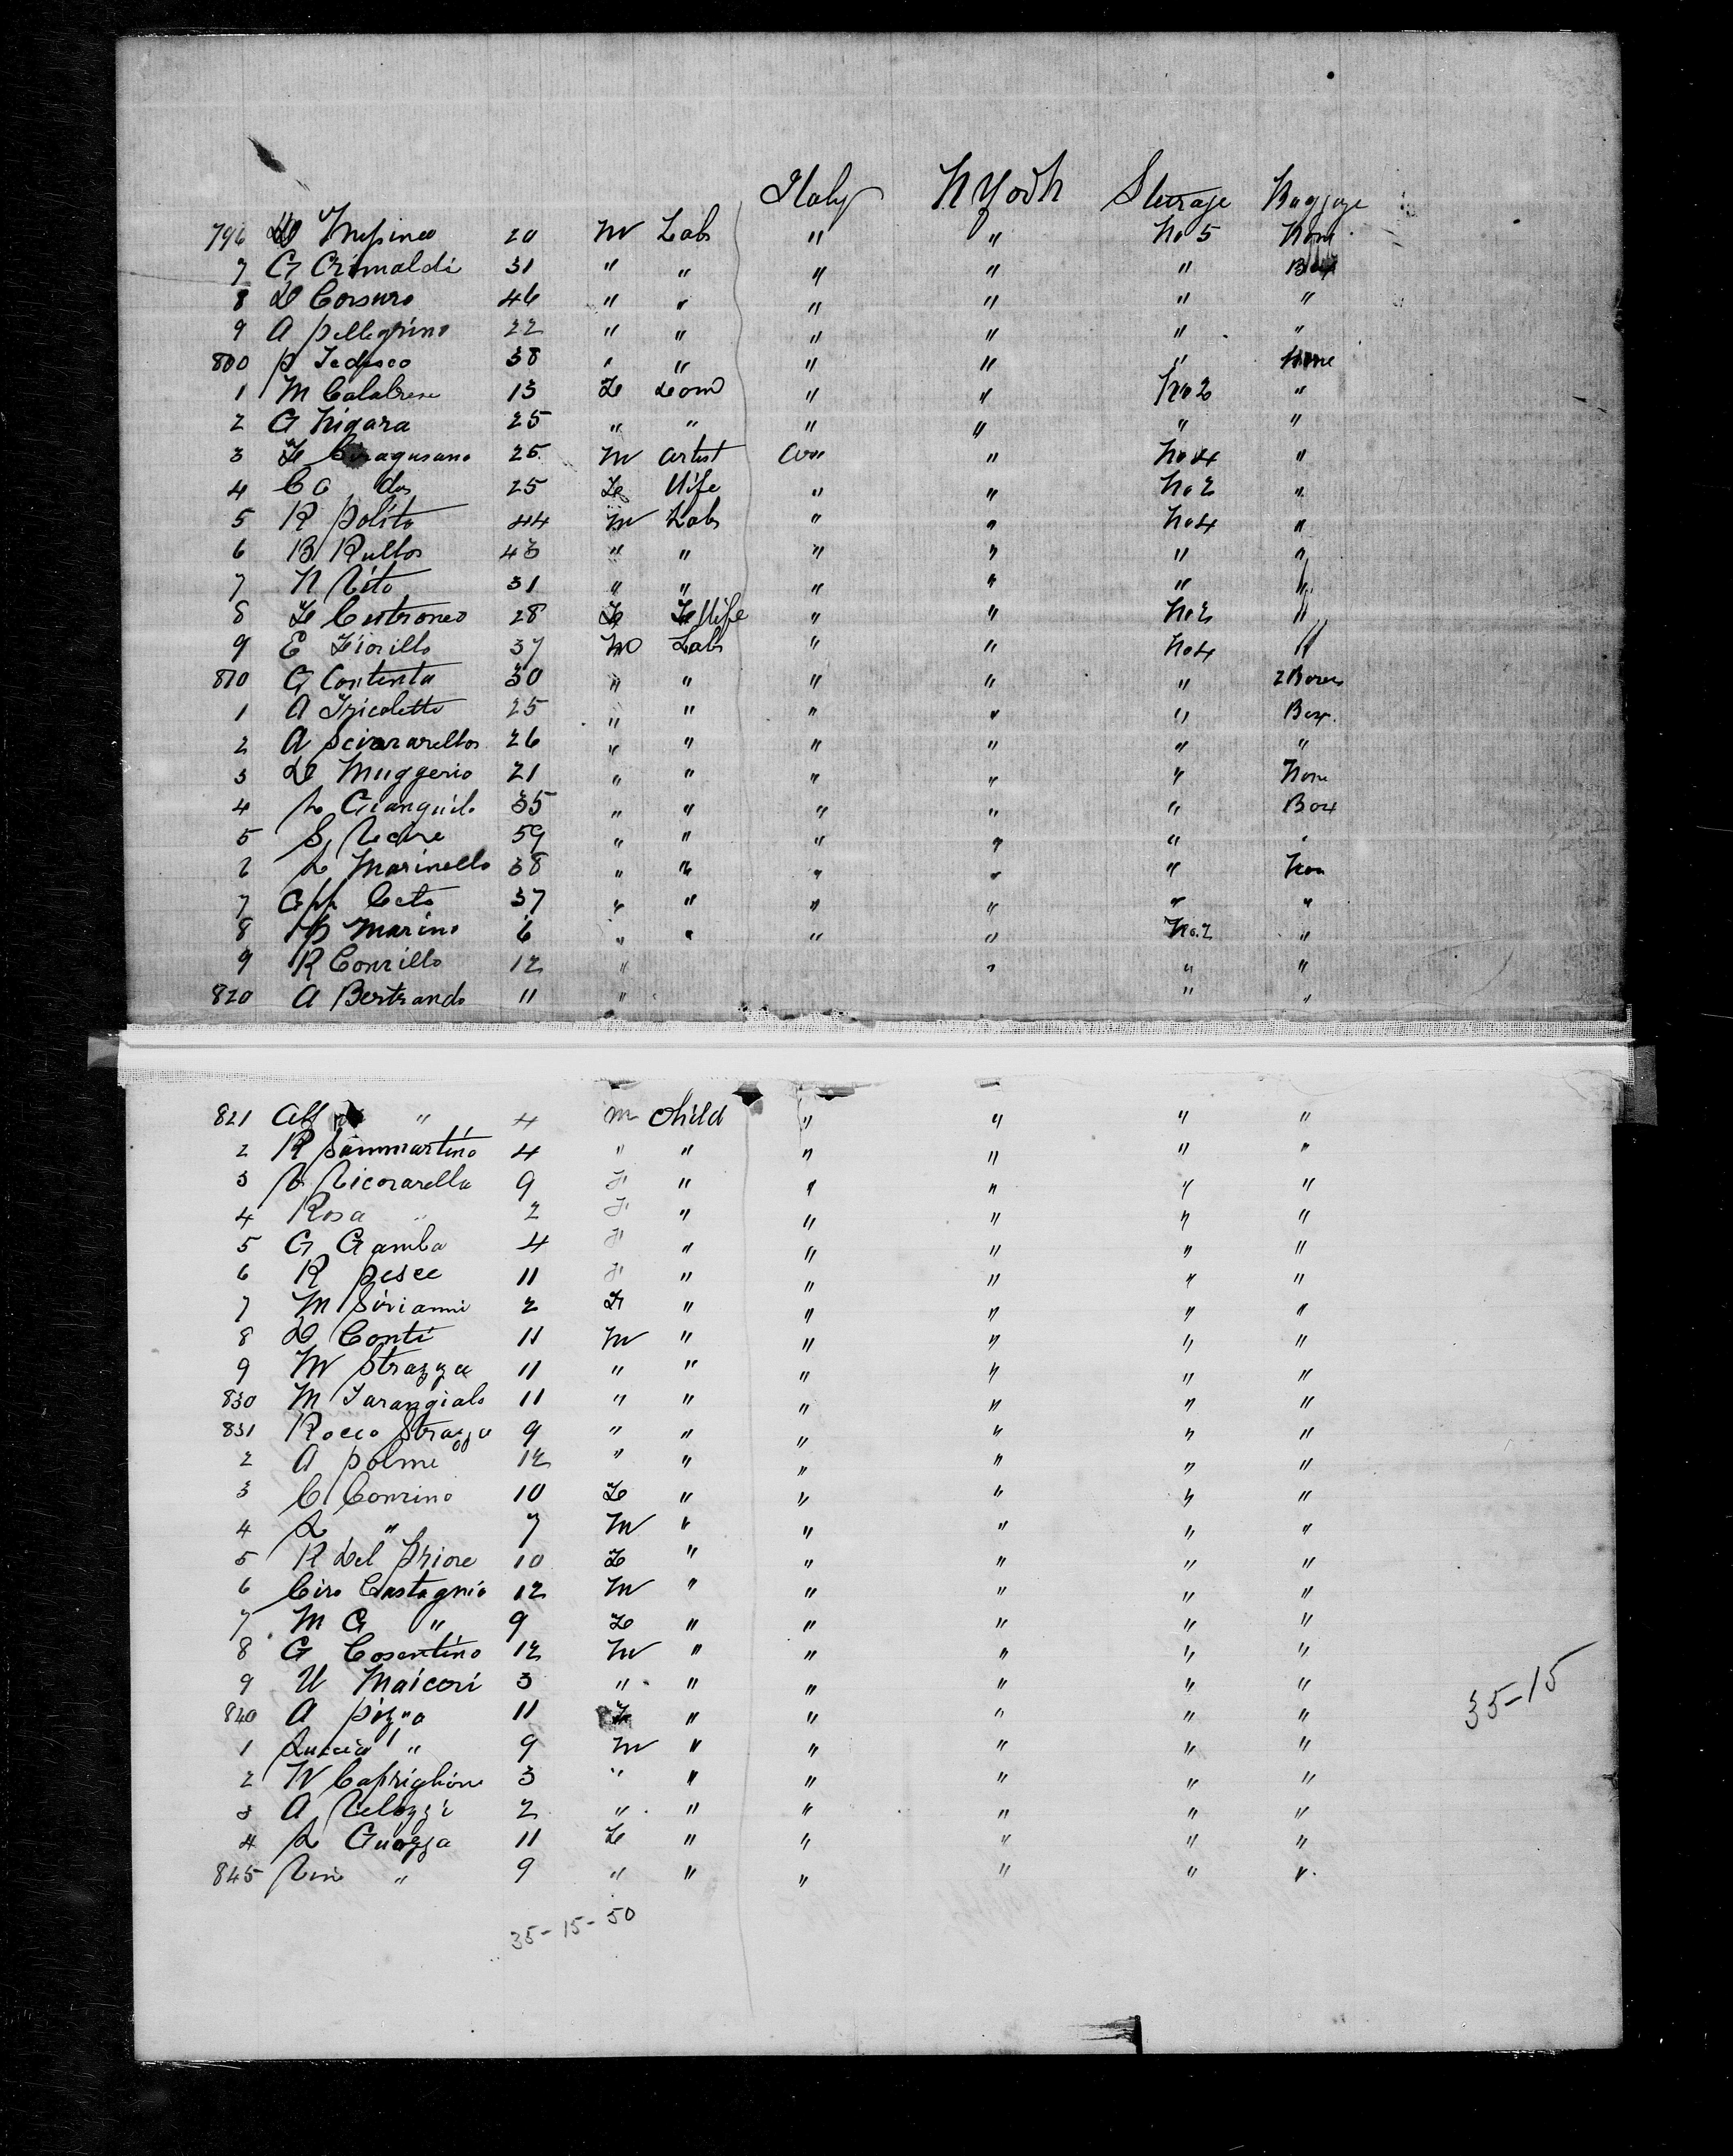 Italy N York Steerage Baggage
796 20 M Lab " " No 5 None
7 G Grimaldi 31 " " " " " Box
8 D Corsuro 46 " " " " " "
9 A Pellegrino 22 " " " " " "
800 P Tedesco 38 " " " " " None
1 M Calabrese 13 F Dom " " No 2 "
2 G Nigara 25 " " " " " "
3 F 25 M Artist " No 4 "
4 C G do 25 F Wife " " No 2 "
5 R Polito 44 M Lab " " No 4 "
6 B Rullo 43 " " " " " "
7 N Vito 31 " " " " " "
8 F Cutroneo 28 F Wife " " No 2 "
9 E Fiorillo 37 M Lab " " No 4 "
810 G Contenta 30 " " " " " 2 Boxes
1 A Tricoletti 25 " " " " " Box
2 A 26 " " " " " "
3 D Muggerio 21 " " " " " None
4 35 " " " " " Box
5 S 59 " " " " " "
6 L Marinello 38 " " " " " Non
7 Ceto 37 " " " " " "
8 P Marino 6 " " " " No. 2 "
9 R Conrillo 12 " " " "
820 A Bertrando 11 " " "
821 Alf " 4 M Child " " " "
2 R Sammartino 4 " " " " " "
3 V Vicorarella 9 F " " " " "
4 Rosa " 2 F " " " " "
5 G Gamba 4 F " " " " "
6 R Pesce 11 F " " " " "
7 M Sirianni 2 F " " " " "
8 D Conti 11 M " " " " "
9 M Strazza 11 " " " " " "
830 M Tarangialo 11 " " " " " "
831 Rocco Strazza 9 " " " " " "
2 A Polme 12 " " " " " "
3 C Conrino 10 F " " " " "
4 L " 7 M " " " " "
5 R Del Priore 10 F " " " " "
6 Ciro Castagnio 12 M " " " " "
7 M G " 9 F " " " " "
8 G Cosentino 12 M " " " " "
9 U Maicori 3 " " " " " "
35-15
840 A 11 F " " " " "
1 " 9 M " " " " "
2 Capriglione 3 " " " " " "
3 A Velozzi 2 " " " " " "
4 L Guozza 11 F " " " " "
845 Vin " 9 " " " " " "
35-15-50